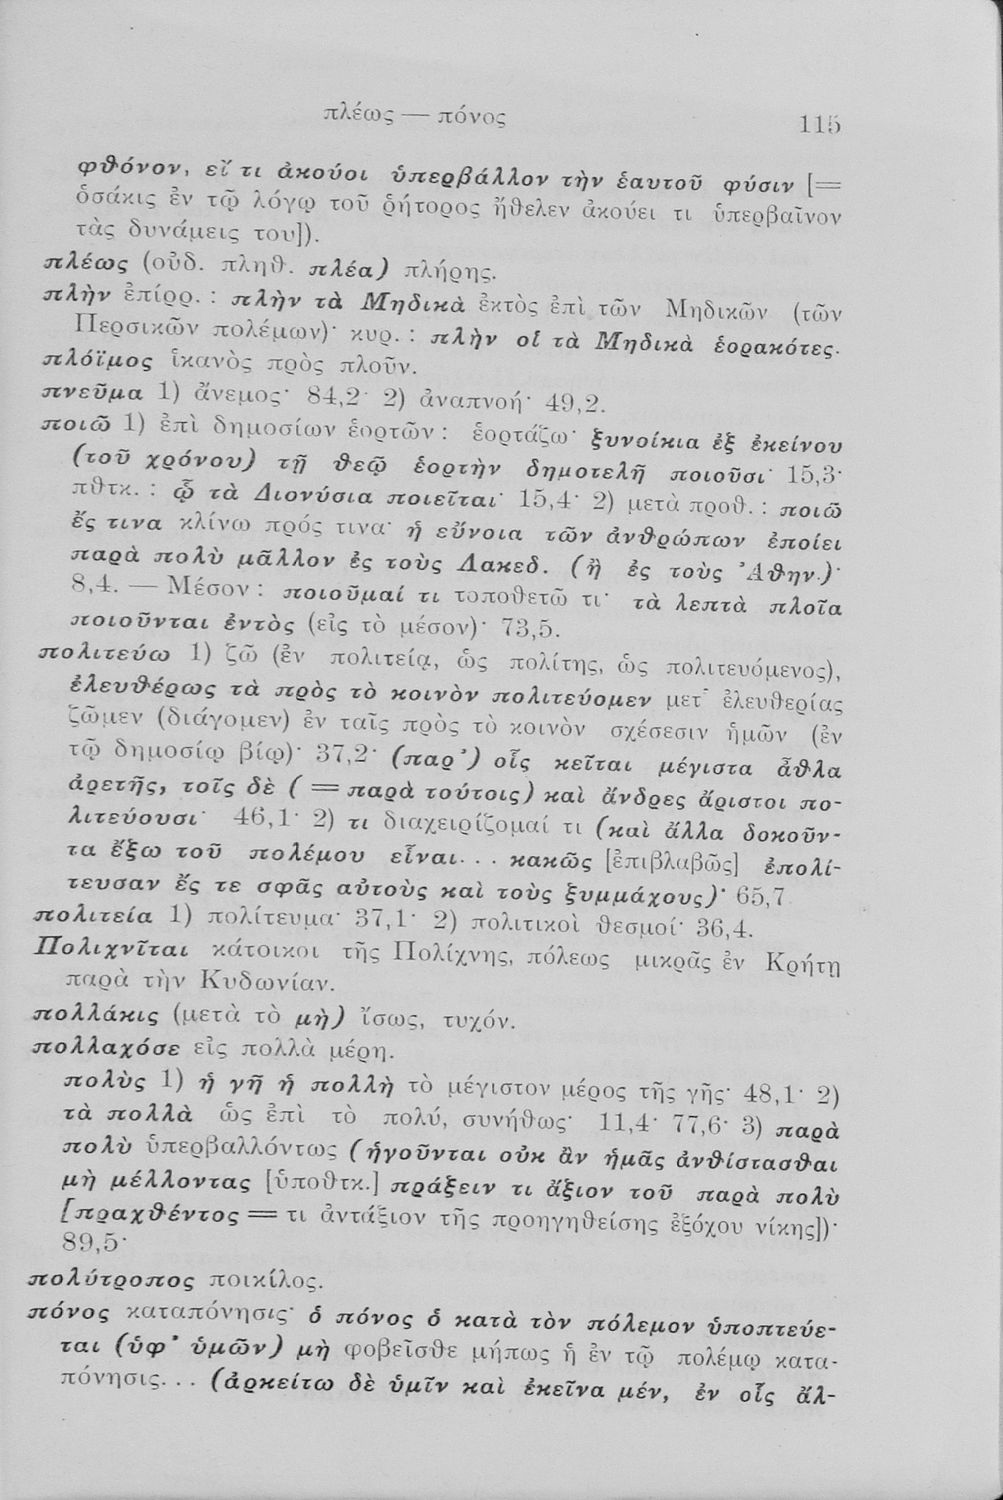 πλέως — πόνος
115
φθόνον, εἴ τι ἀκούοι ὑπερβάλλον τὴν ἑαυτοῦ φύσιν [=
ὁσάκις ἐν τῷ λόγῳ τοῦ ῥήτορος ἤθελεν ἀκούει τι ὑπερβαῖνον
τὰς δυνάμεις του]).
πλέως (οὐδ. πληθ. πλέα) πλήρης.
πλὴν ἐπίρρ. : πλὴν τὰ Μηδικὰ ἐκτὸς ἐπὶ τῶν Μηδικῶν (τῶν
Περσικῶν πολέμων)· κυρ. : πλὴν οἱ τὰ Μηδικὰ ἑορακότες.
πλόϊμος ἱκανὸς πρὸς πλοῦν.
πνεῦμα 1) ἄνεμος· 84,2· 2) ἀναπνοή· 49,2.
ποιῶ 1) ἐπὶ δημοσίων ἑορτῶν : ἑορτάζω· ξυνοίκια ἐξ ἐκείνου
(τοῦ χρόνου) τῇ θεῷ ἑορτὴν δημοτελῆ ποιοῦσι· 15,3·
πθτκ. : ᾧ τὰ Διονύσια ποιεῖται· 15,4· 2) μετὰ προθ. : ποιῶ
ἔς τινα κλίνω πρός τινα· ἡ εὔνοια τῶν ἀνθρώπων ἐποίει
παρὰ πολὺ μᾶλλον ἐς τοὺς Λακεδ. (ἢ ἐς τοὺς Ἀθην.)·
8,4. — Μέσον : ποιοῦμαί τι τοποθετῶ τι· τὰ λεπτὰ πλοῖα
ποιοῦνται ἐντὸς (εἰς τὸ μέσον)· 73,5.
πολιτεύω 1) ζῶ (ἐν πολιτείᾳ, ὡς πολίτης, ὡς πολιτευόμενος),
ἐλευθέρως τὰ πρὸς τὸ κοινὸν πολιτεύομεν μετ᾽ ἐλευθερίας
ζῶμεν (διάγομεν) ἐν ταῖς πρὸς τὸ κοινὸν σχέσεσιν ἡμῶν (ἐν
τῷ δημοσίῳ βίῳ)· 37,2· (παρ᾽) οἷς κεῖται μέγιστα ἆθλα
ἀρετῆς, τοῖς δὲ ( = παρὰ τούτοις) καὶ ἄνδρες ἄριστοι πο-
λιτεύουσι· 46,1· 2) τι διαχειρίζομαί τι (καὶ ἄλλα δοκοῦν-
τα ἔξω τοῦ πολέμου εἶναι... κακῶς [ἐπιβλαβῶς] ἐπολί-
τευσαν ἔς τε σφᾶς αὐτοὺς καὶ τοὺς ξυμμάχους)· 65,7.
πολιτεία 1) πολίτευμα· 37,1· 2) πολιτικοὶ θεσμοί· 36,4.
Πολιχνῖται κάτοικοι τῆς Πολίχνης, πόλεως μικρᾶς ἐν Κρήτῃ
παρὰ τὴν Κυδωνίαν.
πολλάκις (μετὰ τὸ μὴ) ἴσως, τυχόν.
πολλαχόσε εἰς πολλὰ μέρη.
πολὺς 1) ἡ γῆ ἡ πολλὴ τὸ μέγιστον μέρος τῆς γῆς· 48,1· 2)
τὰ πολλὰ ὡς ἐπὶ τὸ πολύ, συνήθως· 11,4· 77,6· 3) παρὰ
πολὺ ὑπερβαλλόντως (ἡγοῦνται οὐκ ἂν ἡμᾶς ἀνθίστασθαι
μὴ μέλλοντας [ὑποθτκ.] πράξειν τι ἄξιον τοῦ παρὰ πολὺ
[πραχθέντος = τι ἀντάξιον τῆς προηγηθείσης ἐξόχου νίκης])·
89,5·
πολύτροπος ποικίλος.
πόνος καταπόνησις· ὁ πόνος ὁ κατὰ τὸν πόλεμον ὑποπτεύε-
ται (ὑφ᾽ ὑμῶν) μὴ φοβεῖσθε μήπως ἡ ἐν τῷ πολέμῳ κατα-
πόνησις... (ἀρκείτω δὲ ὑμῖν καὶ ἐκεῖνα μέν, ἐν οἷς ἄλ-